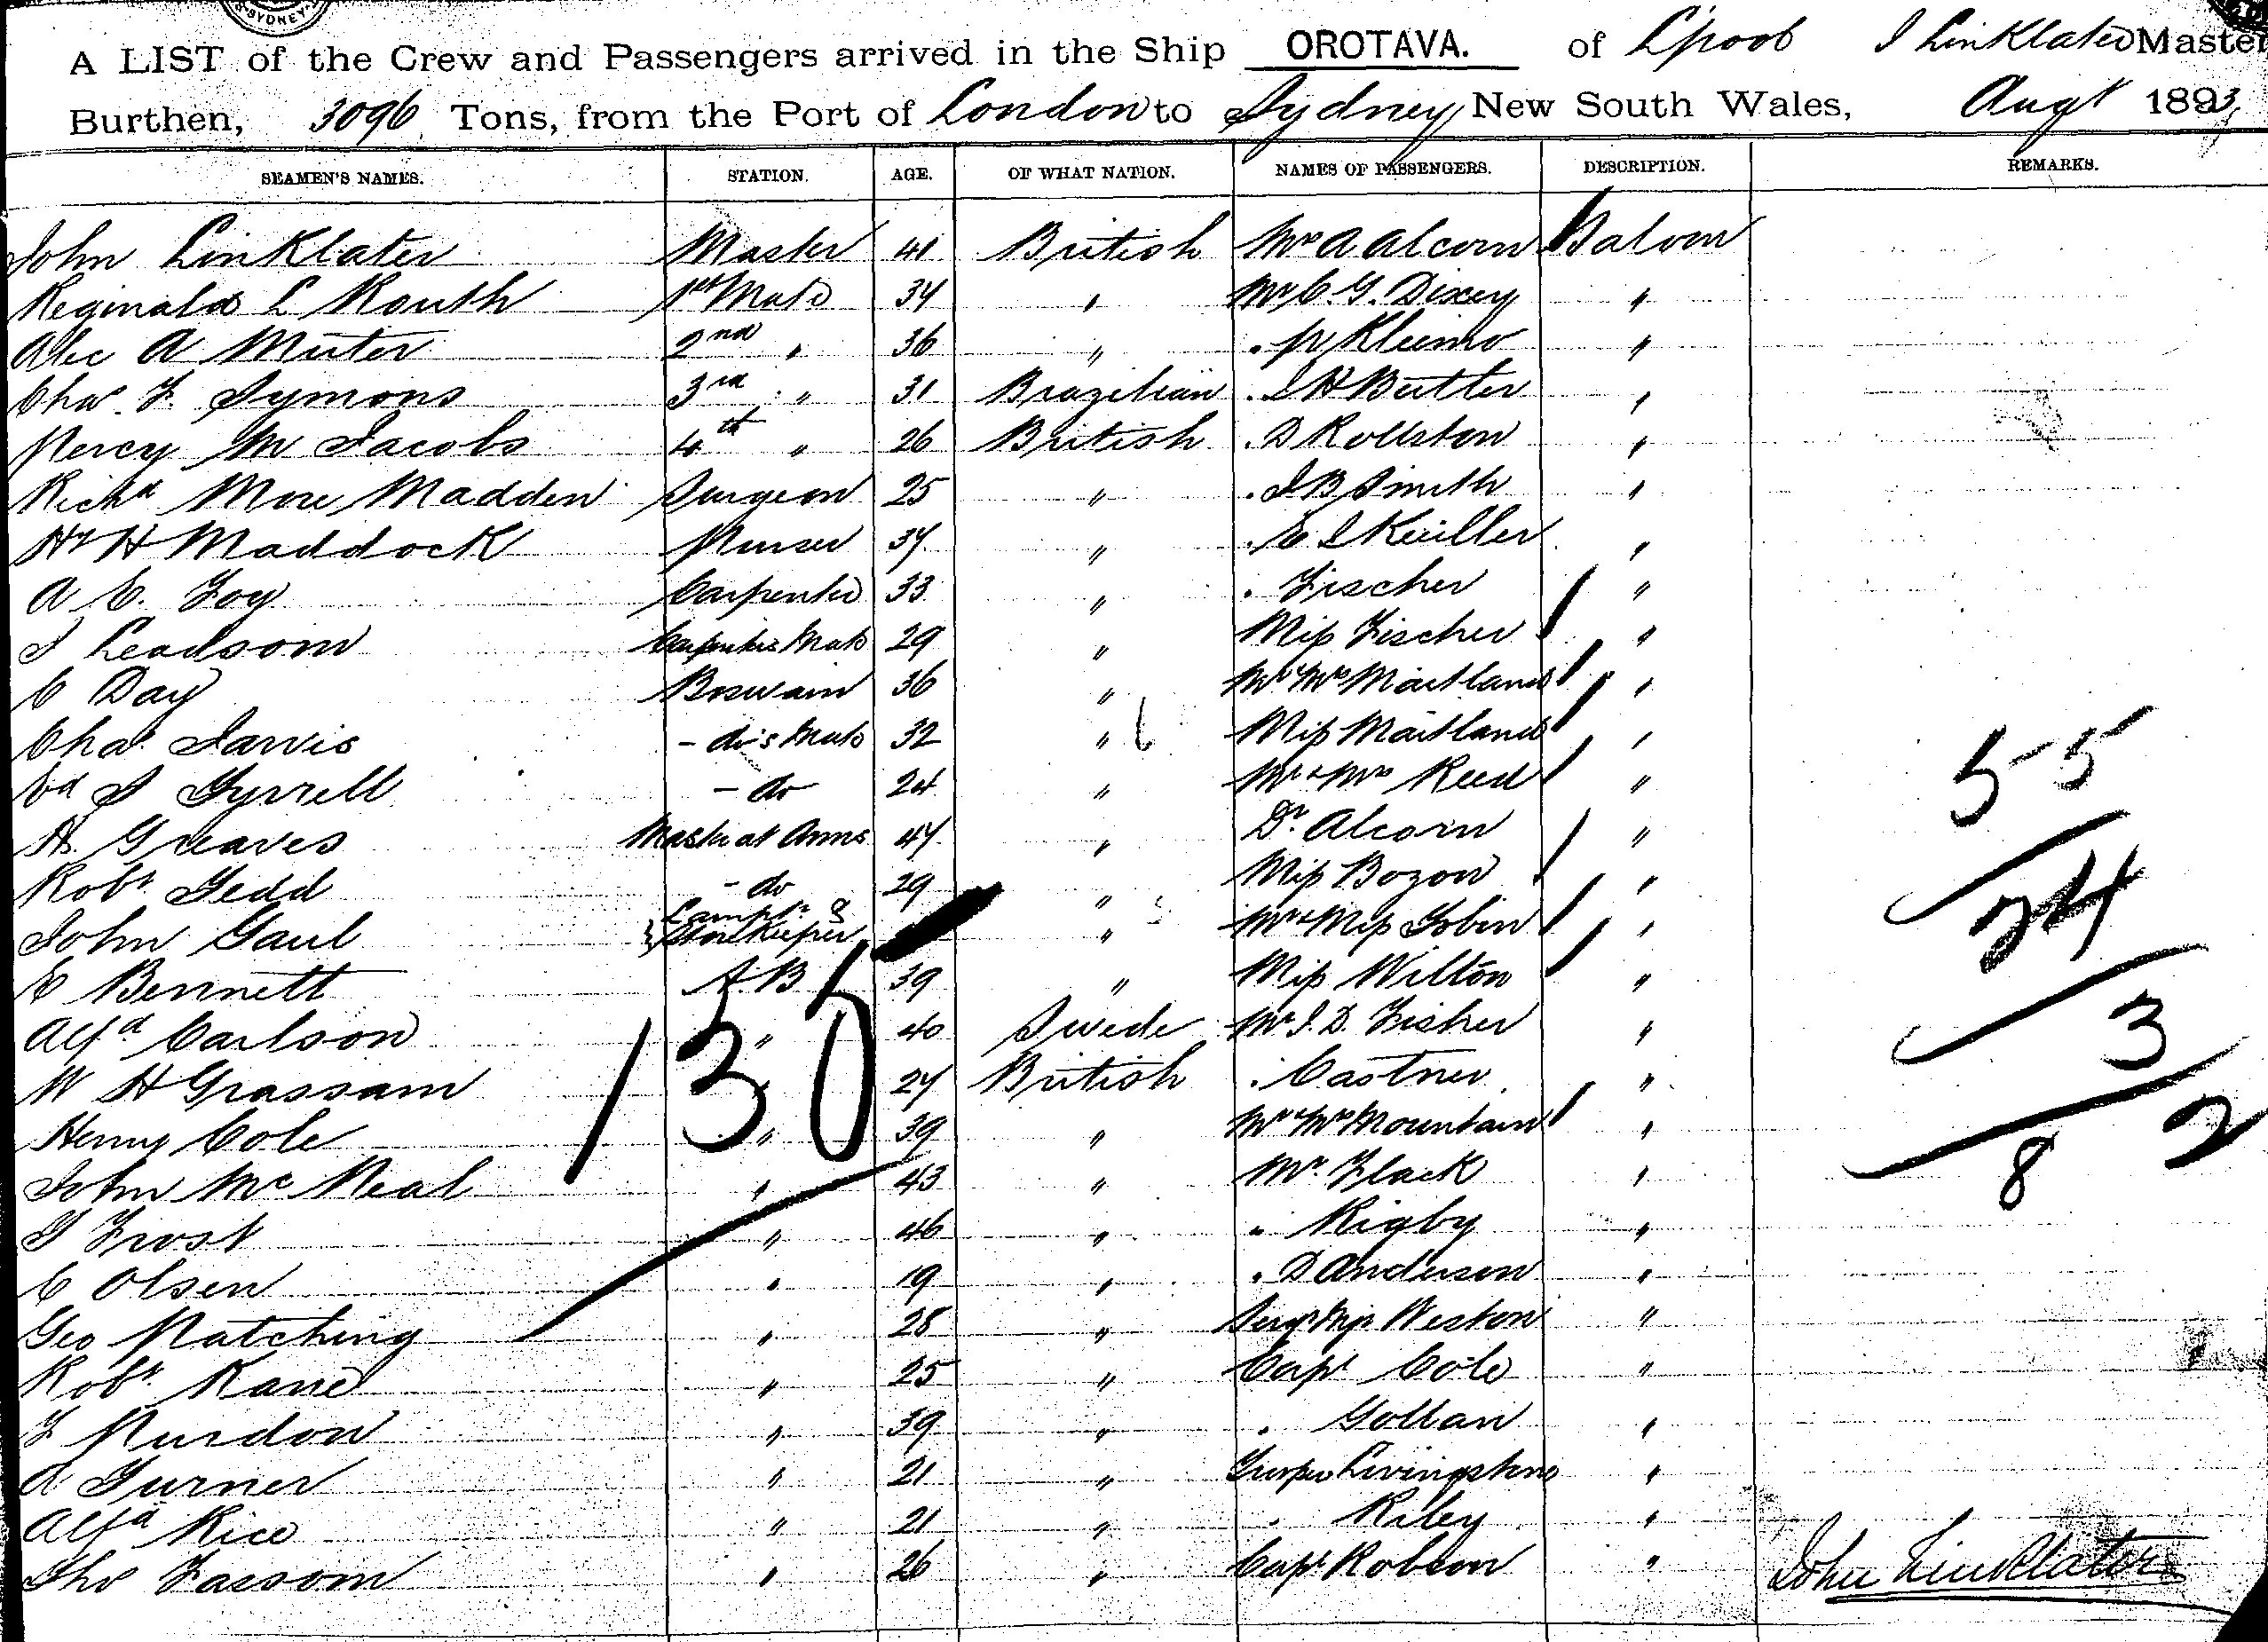 SYDNEY
A LIST of the Crew and Passengers arrived in the Ship OROTAVA. of L'pool J Linklater Master
Burthen, 3096 Tons, from the Port of London to Sydney, New South Wales, Augt 1893
SEAMEN'S NAMES. STATION. AGE. OF WHAT NATION. NAMES OF PASSENGERS. DESCRIPTION. REMARKS.
John Linklater Master 41 British Mrs A Alcorn Saloon
Reginald L Routh 1st Mate 34 " Mr C. G. Dixey "
Alec A Muter 2nd " 36 " "
Chas F Symons 3rd " 31 Brazilian " J H Butler "
Percy M Jacobs 4th " 26 British " D Rollston "
Richd More Madden Surgeon 25 " " J B Smith "
Hy H Maddock Purser 34 " "
A E. Foy Carpenter 33 " " Fischer "
J Leadsom Carpenters Mate 29 " Miss Fischer "
C Day Boswain 36 " Mr & Mrs Maitland "
Chas. Jarvis - do's Mate 32 " Miss Maitland "
Ed J Tyrrell - do 24 " Mr & Mrs Reed "
A. Greaves Master at Arms 47 " Dr. Alcorn "
Robt Tedd - do 29 " Miss Bozon "
John Gaul Lampt. & Storekeeper " Mr & Miss Tobin "
C Bennett A B 39 " Miss Wilton "
Alfd Carlson " 40 Swede Mr J. D. Fisher "
W H Grassam " 27 British " Castner "
Henry Cole " 39 " Mr & Mrs Mountain "
John McNeal " 43 " Mr. Flack "
J Frost " 46 " " Rigby "
C Olsen " 19 " " D Anderson "
Geo Patching " 28 " Weston "
Robt. Kane " 25 " Capt Cole "
F Purdon " 39 " " Gollan "
A Turner " 21 " Livingstone "
Alfd Rice " 21 " " Riley "
Thos Fassom " 26 " Capt Robson "
130
55
24
3
2
8
John Linklater